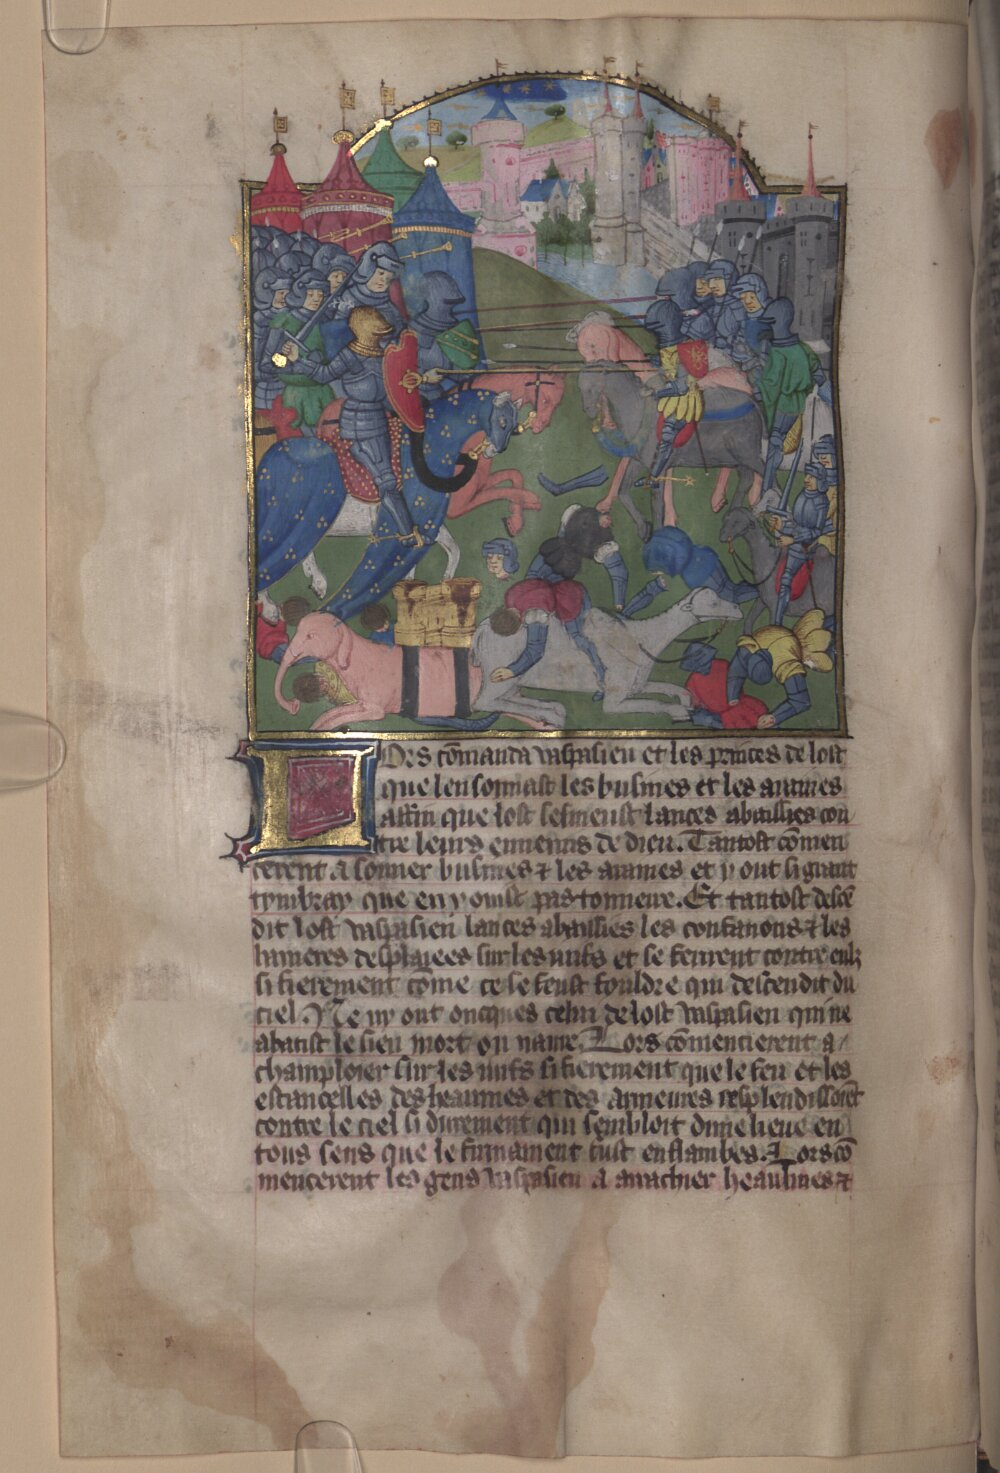 Lors cōmanda vaspasien et les princes de lost
que len sonnast les busines et les araines
affin que lost sesmeust lances abaissies con
tre leurs ennemis de dieu. Tantost cōmen
cerent a sonner busines ⁊ les araines et y out si grant
tymbray que en y ouist pas tonneire. Et tantost descē
dit lost vaspasien lances abaissies les confanons ⁊ les
banieres desploiees sur les iuifs et se ferirent contre eulz
si fierement cōme ce se feust fouldre qui descendit du
ciel. Ne ny ont oncques celui de lost vaspasien qui ne
abatist le sien mort ou naure. Lors cōmencierent a
champloier sur les iuifs si fierement que le feu et les
estancelles des heaumes et des armeures resplendissoiēt
contre le ciel si durement qui sembloit dune lieue en
tous sens que le firmament fust enflambes. Lors cō
mencerent les gens vaspasien a arrachier heaulmes ⁊